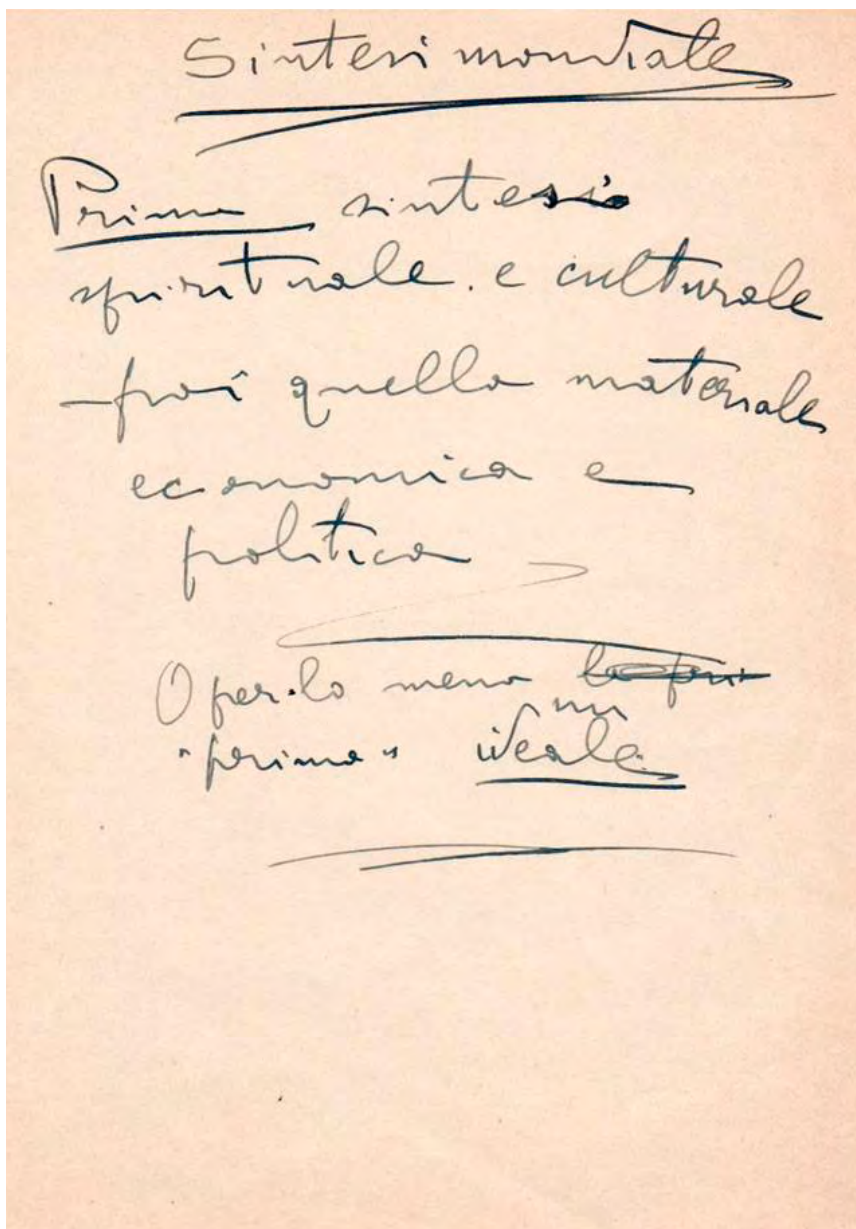 Sintesi mondiale
Prima sintesi
spirituale e culturale
– poi quella materiale
economica e
politica
O per lo meno
un
"prima" ideale